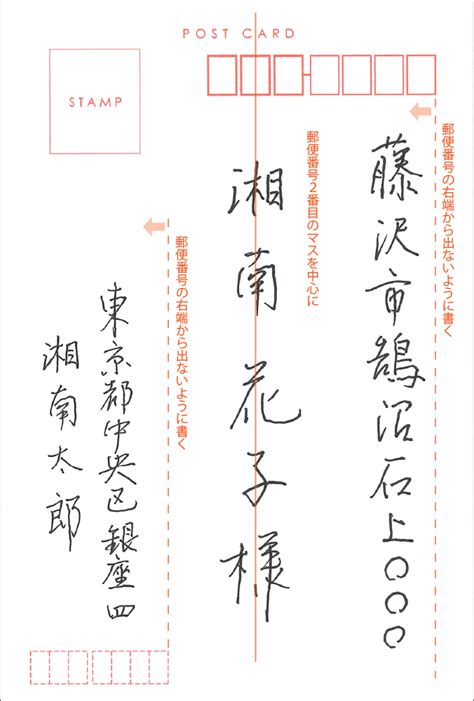 POST CARD
STAMP
郵便番号の右端から出ないように書く
藤沢市鵠沼石上〇〇〇
郵便番号2番目のマスを中心に
湘南花子様
郵便番号の右端から出ないように書く
東京都中央区銀座四
湘南太郎